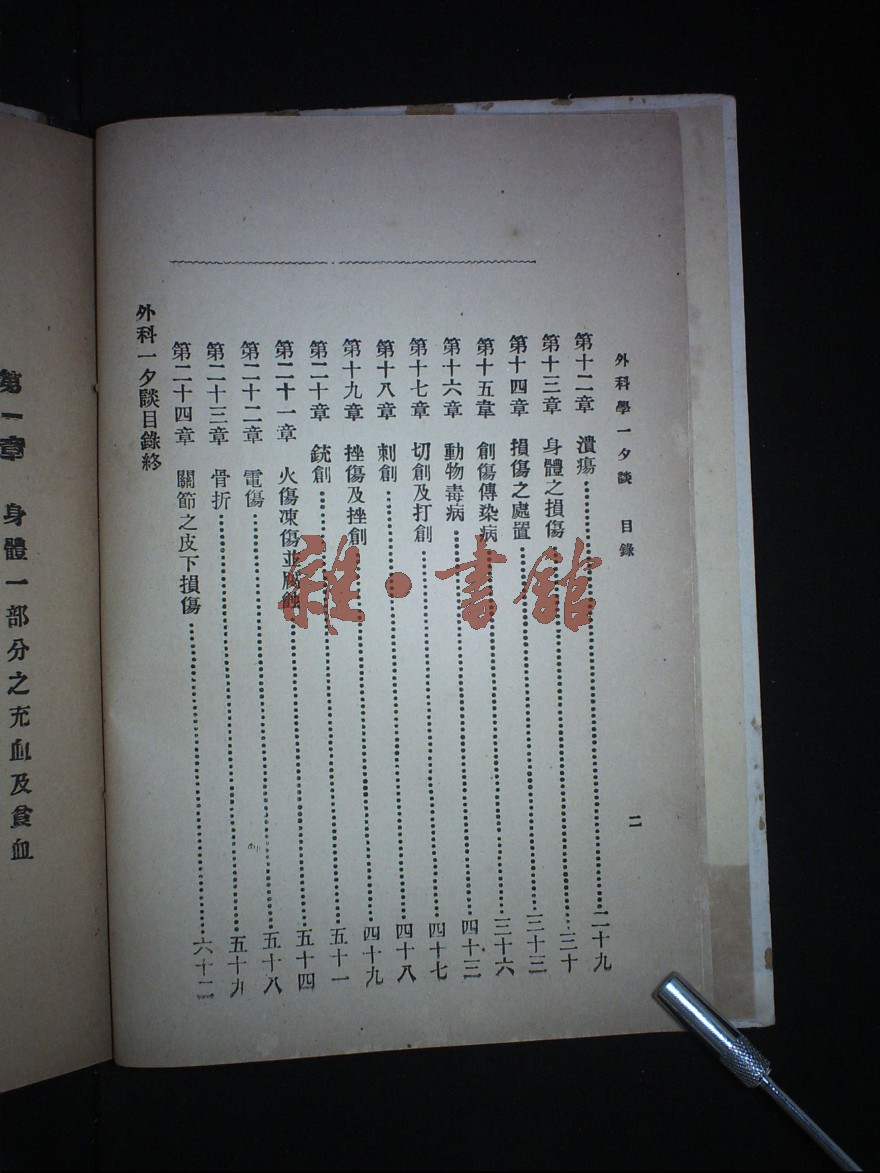 外科學一夕談　目錄　二
第十二章　潰瘍……二十九
第十三章　身體之損傷……三十
第十四章　損傷之處置……三十三
第十五章　創傷傳染病……三十六
第十六章　動物毒病……四十三
第十七章　切創及打創……四十七
第十八章　刺創……四十八
第十九章　挫傷及挫創……四十九
第二十章　銃創……五十一
第二十一章　火傷凍傷並腐蝕……五十四
第二十二章　電傷……五十八
第二十三章　骨折……五十九
第二十四章　關節之皮下損傷……六十二
外科一夕談目錄終
第一章　身體一部分之充血及貧血
雜·書館